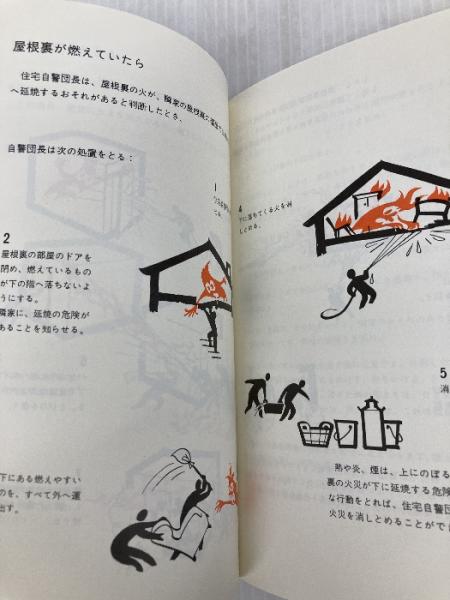 屋根裏が燃えていたら
住宅自警団長は、屋根裏の火が、隣家の屋根裏に
へ延焼するおそれがあると判断したとき、
自警団長は次の処置をとる：
1
2
屋根裏の部屋のドアを
閉め、燃えているもの
が下の階へ落ちないよ
うにする。
隣家に、延焼の危険が
あることを知らせる。
下にある燃えやすい
のを、すべて外へ運
出す。
4
下に落ちてくる火を消
しとめる。
5
消
熱や炎、煙は、上にのぼる
裏の火災が下に延焼する危険
な行動をとれば、住宅自警団
火災を消しとめることがで